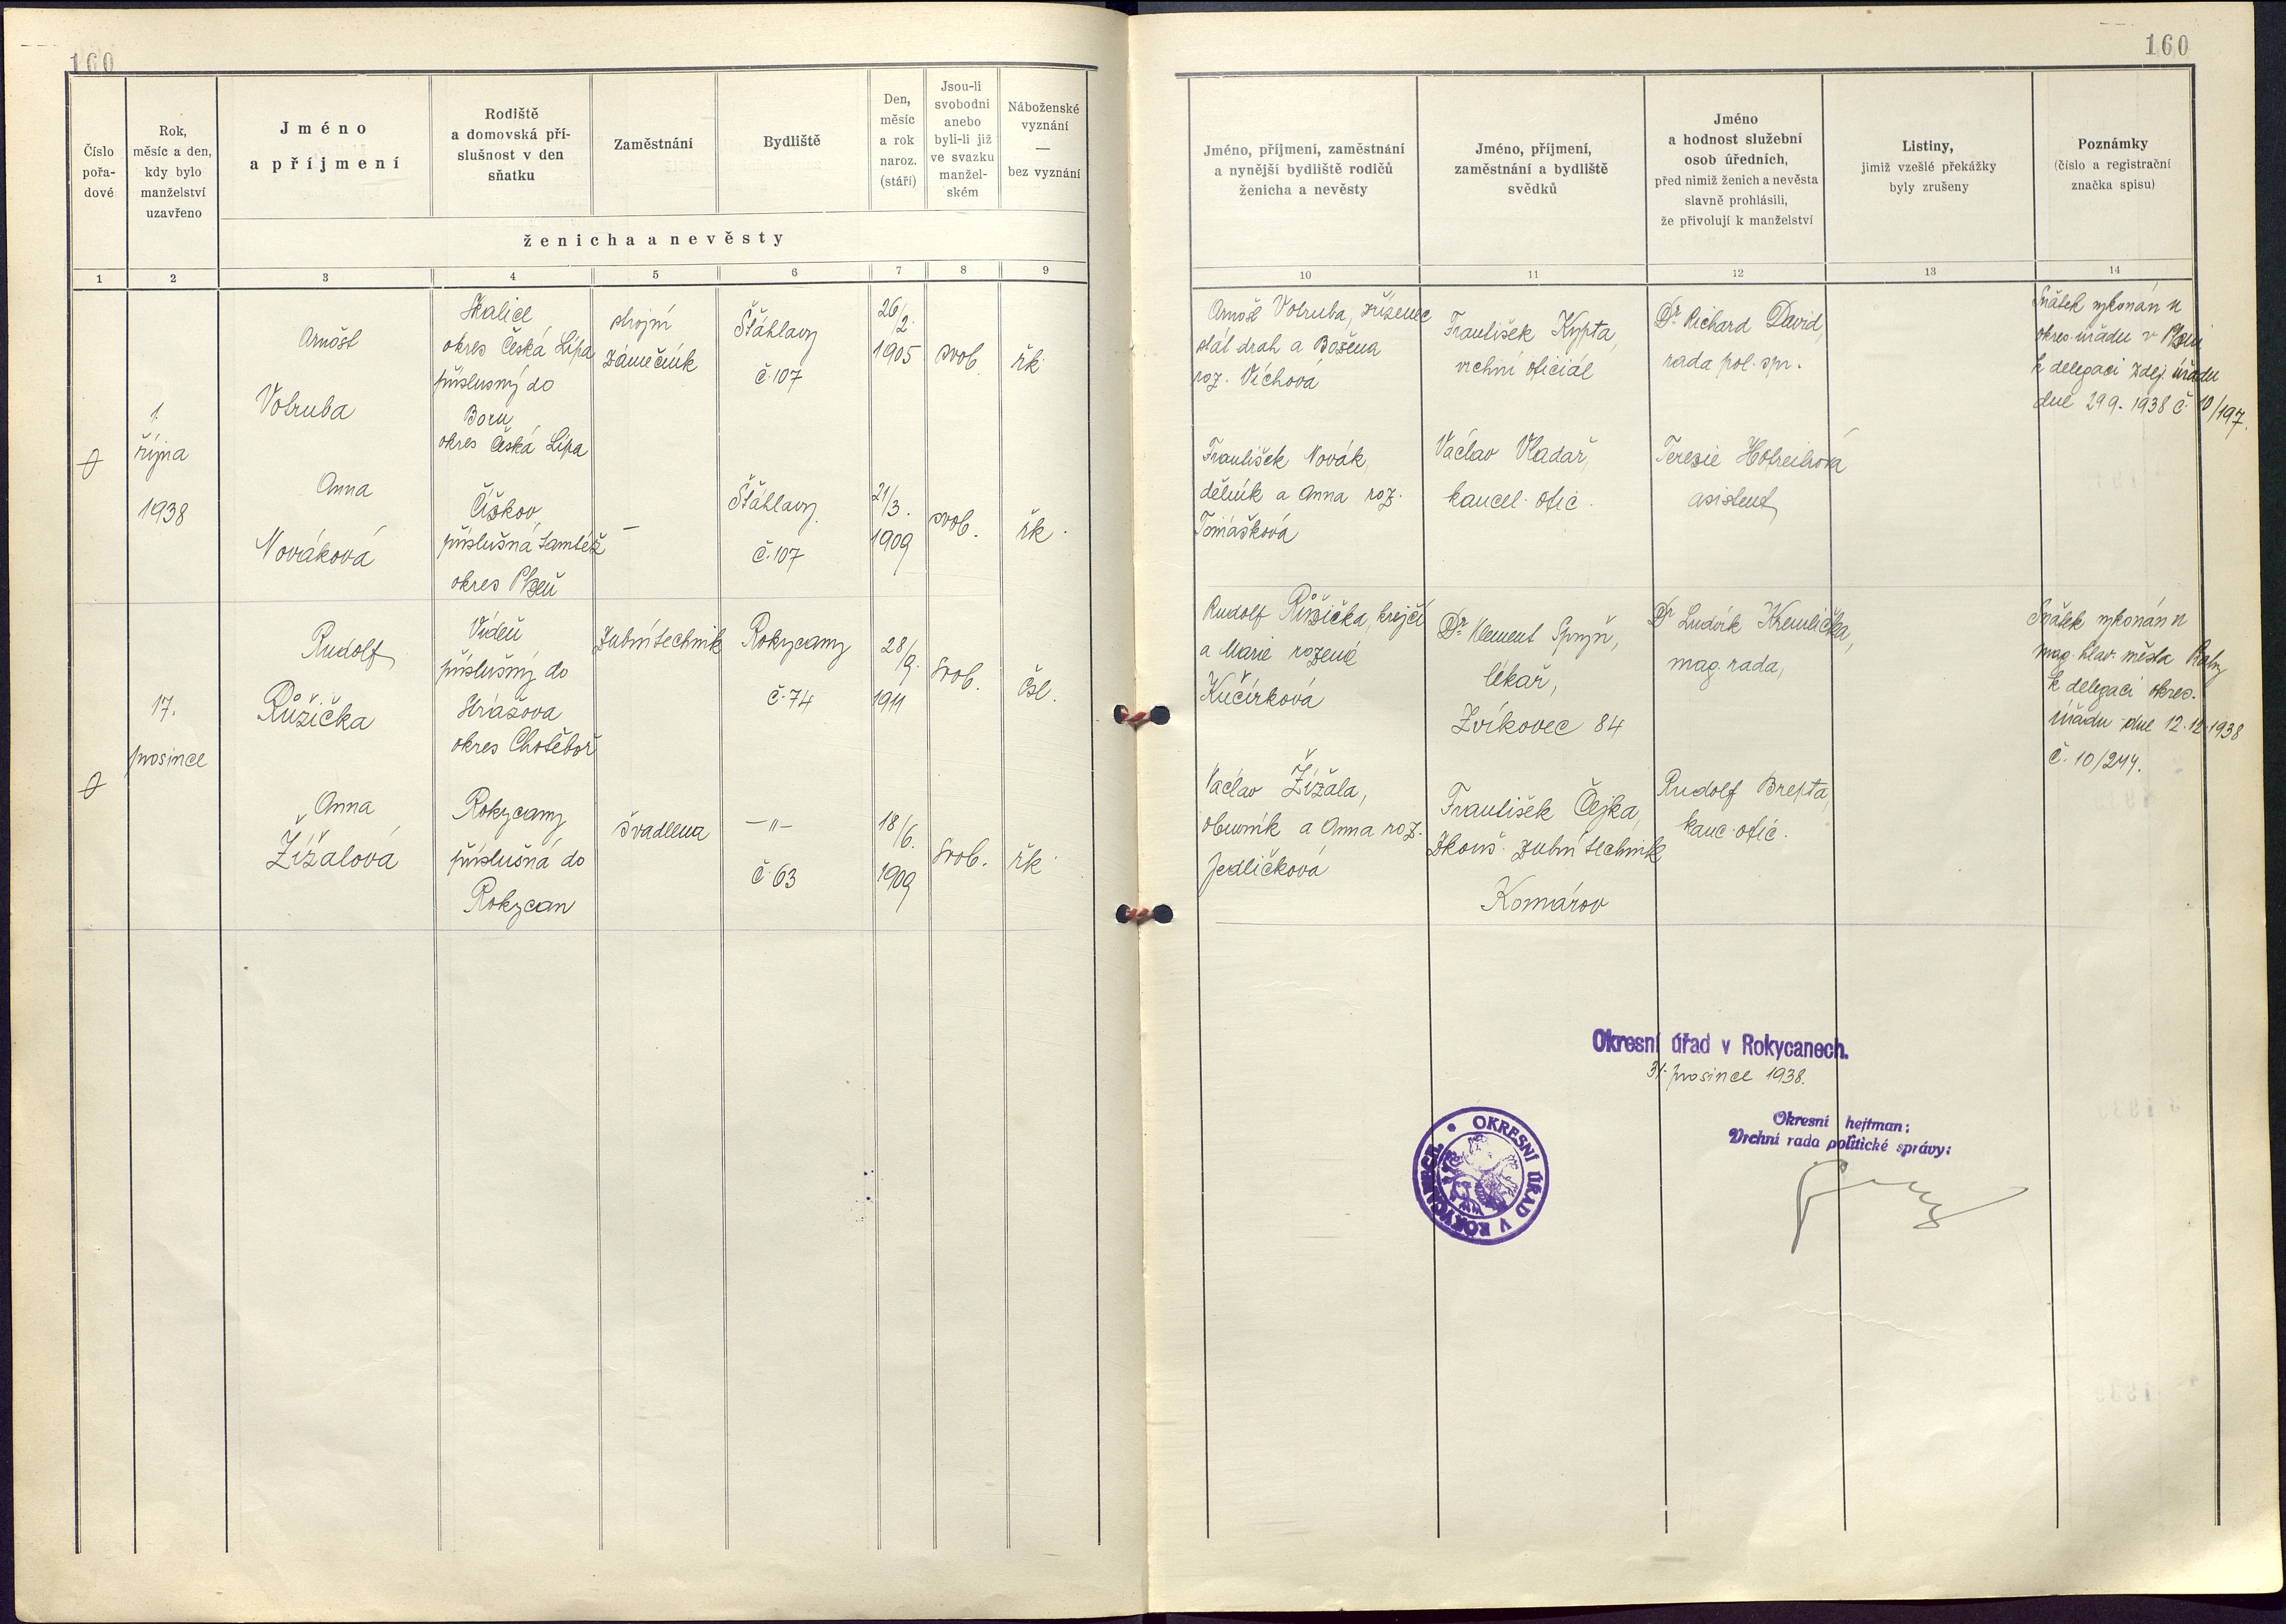 160
160
Číslo pořa-dové
Rok, měsíc a den, kdy bylo manželství uzavřeno
Jméno a příjmení
Rodiště a domovská pří-slušnost v den sňatku
Zaměstnání
Bydliště
Den, měsíc a rok naroz. (stáří)
Jsou-li svobodni anebo byli-li již ve svazku manžel-ském
Náboženské vyznání — bez vyznání
ženicha a nevěsty
Jméno, příjmení, zaměstnání a nynější bydliště rodičů ženicha a nevěsty
Jméno, příjmení, zaměstnání a bydliště svědků
Jméno a hodnost služební osob úředních, před nimiž ženich a nevěsta slavně prohlásili, že přivolují k manželství
Listiny, jimiž vzešlé překážky byly zrušeny
Poznámky (číslo a registrační značka spisu)
1 2 3 4 5 6 7 8 9
10 11 12 13 14
1.
října
1938
Arnošt
Votruba
Skalice
okres Česká Lípa
příslusný do
Boru
okres Česká Lípa
strojní
zámečník
Štáhlavy
č. 107
26/2.
1905
svob.
řk.
Anna
Nováková
Čížkov
příslušná
okres Plzeň
—
Štáhlavy
č. 107
21/3.
1909
svob.
řk.
Arnošt Votruba, zřízenec
stát drah a Božena
roz. Víchová
František Novák,
dělník a Anna roz.
Tomášková
František Kypta,
vrchní oficiál
Václav Vladař,
kancel. ofic.
Dr Richard David,
rada pol. spr.
Terezie
asistent
Sňatek vykonán u
okres. úřadu v Plzni
k delegaci zdej. úřadu
dne 29.9. 1938 č. 10/197.
17.
prosince
Rudolf
Růžička
Vídeň
příslušný do
okres Chotěboř
Zubní technik
Rokycany
č. 74
28/9.
1911
svob.
čsl.
Anna
Žížalová
Rokycany
příslušná do
Rokycan
švadlena
—"—
č. 63
18/6.
1909
svob.
řk.
Rudolf Růžička, krejčí
a Marie rozená
Kučírková
Václav Žížala,
obuvník a Anna roz.
Jedličková
Dr Klement
lékař,
Zvíkovec 84
František Čejka,
zkouš. zubní technik
Komárov
Dr Ludvík
mag. rada,
Rudolf Brepta,
kanc. ofic.
Sňatek vykonán u
mag. hlav. města Prahy
k delegaci okres.
úřadu dne 12.12.1938
č. 10/244.
Okresní úřad v Rokycanech.
31. prosince 1938.
Okresní hejtman:
Vrchní rada politické správy:
OKRESNÍ ÚŘAD V ROKYCANECH